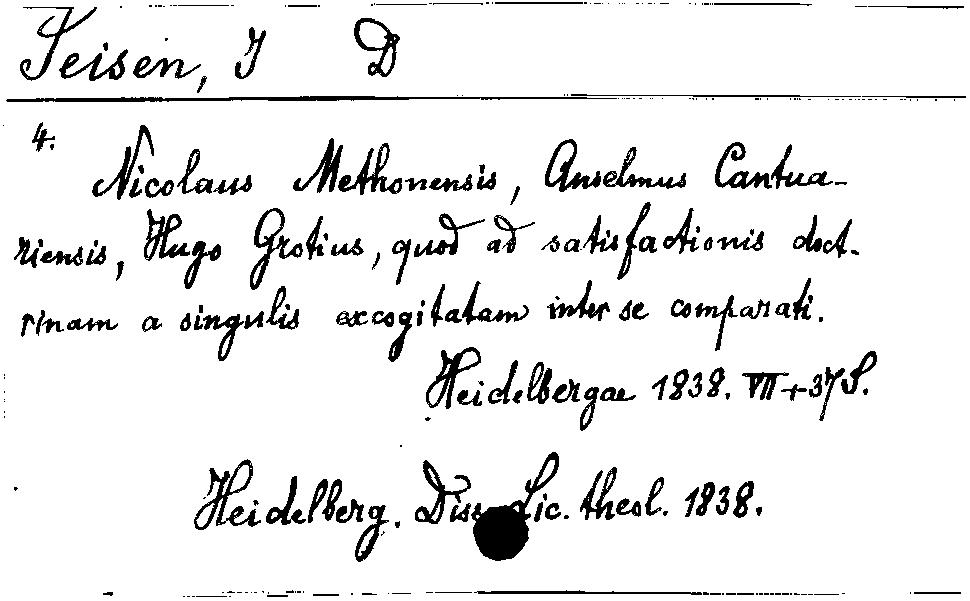 Seisen, J D
4.
Nicolaus Methonensis, Anselmus Cantua-
riensis, Hugo Grotius, quod ad satisfactionis doct-
rinam a singulis excogitatam inter se comparati.
Heidelbergae 1838. VII+37 S.
Heidelberg. Diss. Lic. theol. 1838.